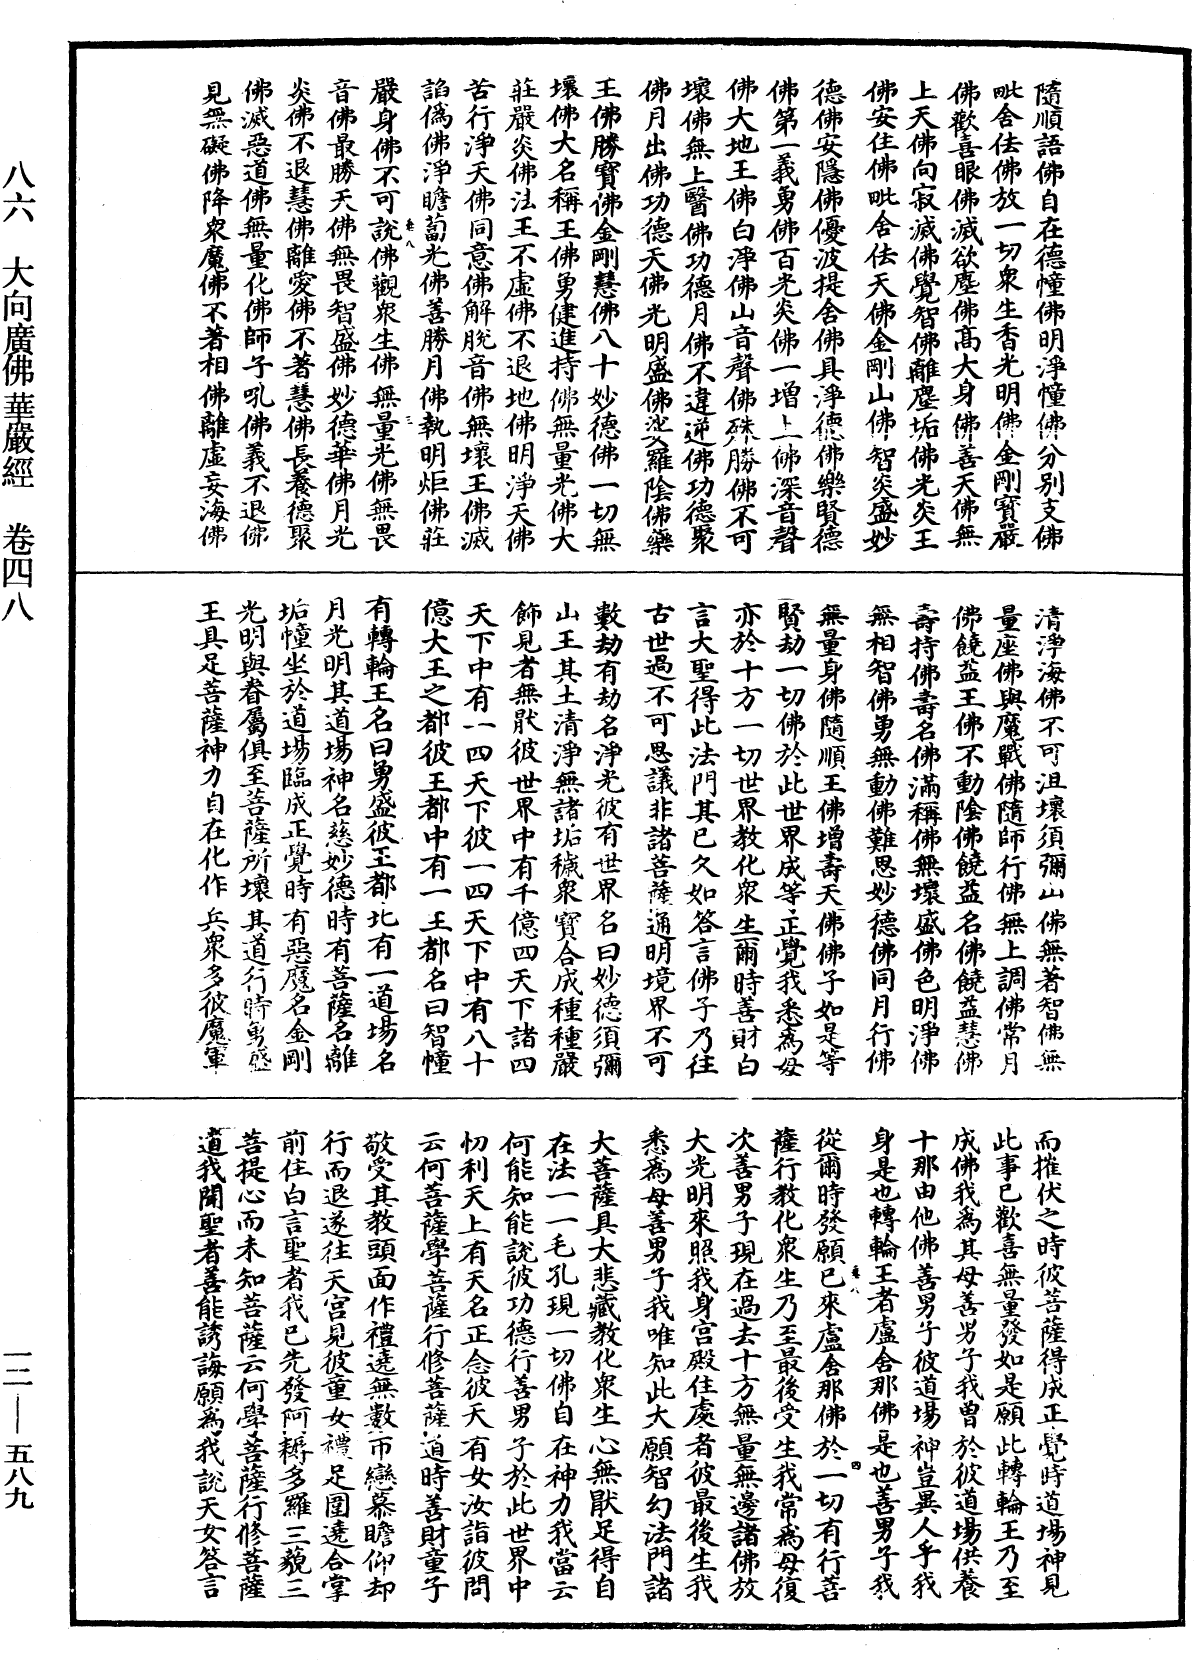 隨順語佛自在德幢佛明淨幢佛分别支佛
毗舍佉佛放一切衆生香光明佛金剛寶嚴
佛歡喜眼佛滅欲塵佛髙大身佛善天佛無
上天佛向寂滅佛覺智佛離塵垢佛光炎王
佛安住佛毗舍佉天佛金剛山佛智炎盛妙
德佛安隱佛優波提舍佛具淨德佛樂賢德
佛第一義勇佛百光炎佛一增上佛深音聲
佛大地王佛白淨佛山音聲佛殊勝佛不可
壞佛無上醫佛功德月佛不違逆佛功德聚
佛月出佛功德天佛光明盛佛娑羅陰佛藥
王佛勝寶佛金剛慧佛八十妙德佛一切無
壞佛大名稱王佛勇健進持佛無量光佛大
莊嚴炎佛法王不虛佛不退地佛明淨天佛
苦行淨天佛同意佛解脫音佛無壞王佛滅
諂僞佛淨瞻蔔光佛善勝月佛執明炬佛莊
嚴身佛不可說佛觀衆生佛無量光佛無畏
音佛最勝天佛無畏智盛佛妙德華佛月光
炎佛不退慧佛離愛佛不著慧佛長養德聚
佛滅惡道佛無量化佛師子吼佛義不退佛
見無礙佛降衆魔佛不著相佛離虛妄海佛
清淨海佛不可沮壞須彌山佛無著智佛無
量座佛與魔戰佛隨師行佛無上調佛常月
佛饒益王佛不動陰佛饒益名佛饒益慧佛
壽持佛壽名佛滿稱佛無壞盛佛色明淨佛
無相智佛勇無動佛難思妙德佛同月行佛
無量身佛隨順王佛增壽天佛佛子如是等
賢劫一切佛於此世界成等正覺我悉爲母
亦於十方一切世界教化衆生爾時善財白
言大聖得此法門其已久如答言佛子乃往
古世過不可思議非諸菩薩通明境界不可
數劫有劫名淨光彼有世界名曰妙德須彌
山王其土清淨無諸垢穢衆寶合成種種嚴
飾見者無猒彼世界中有千億四天下諸四
天下中有一四天下彼一四天下中有八十
億大王之都彼王都中有一王都名曰智幢
有轉輪王名曰勇盛彼王都北有一道場名
月光明其道場神名慈妙德時有菩薩名離
垢幢坐於道場臨成正覺時有惡魔名金剛
光明與眷屬俱至菩薩所壞其道行時勇盛
王具足菩薩神力自在化作兵衆多彼魔軍
而摧伏之時彼菩薩得成正覺時道場神見
此事已歡喜無量發如是願此轉輪王乃至
成佛我爲其母善男子我曽於彼道場供養
十那由他佛善男子彼道場神豈異人乎我
身是也轉輪王者盧舍那佛是也善男子我
從爾時發願已來盧舍那佛於一切有行菩
薩行教化衆生乃至最後受生我常爲母復
次善男子現在過去十方無量無邊諸佛放
大光明來照我身宫殿住處者彼最後生我
悉爲母善男子我唯知此大願智幻法門諸
大菩薩具大悲藏教化衆生心無猒足得自
在法一一毛孔現一切佛自在神力我當云
何能知能說彼功德行善男子於此世界中
忉利天上有天名正念彼天有女汝詣彼問
云何菩薩學菩薩行修菩薩道時善財童子
敬受其教頭面作禮遶無數帀戀慕瞻仰却
行而退遂往天宫見彼童女禮足圍遶合掌
前住白言聖者我已先發阿耨多羅三藐三
菩提心而未知菩薩云何學菩薩行修菩薩
道我聞聖者善能誘誨願爲我說天女答言
卷八
三
卷八
四
八六　大向廣佛華嚴經　卷四八
一三——五八九